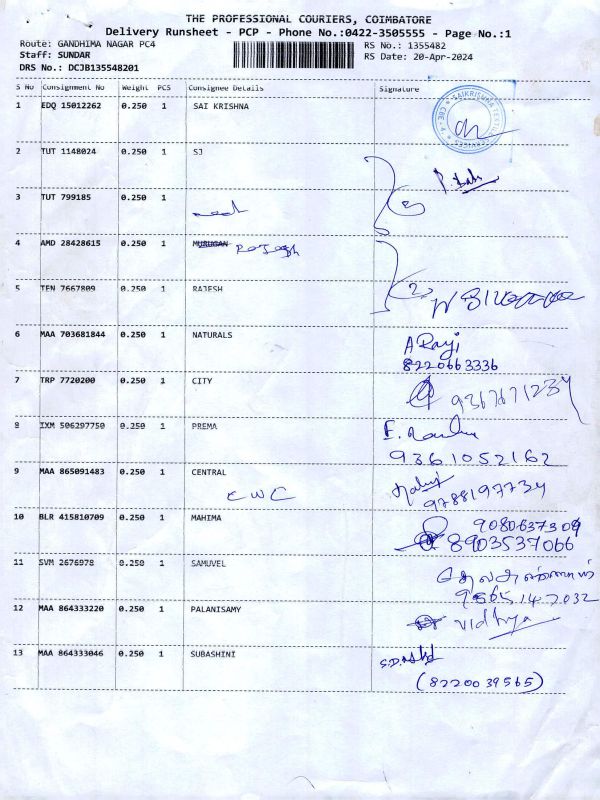 THE PROFESSIONAL COURIERS, COIMBATORE
Delivery Runsheet - PCP - Phone No.:0422-3505555 - Page No.:1
Route: GANDHIMA NAGAR PC4 RS No.: 1355482
Staff: SUNDAR RS Date: 20-Apr-2024
DRS No.: DCJB135548201
S No Consignment No Weight PCS Consignee Details Signature
1 EDQ 15012262 0.250 1 SAI KRISHNA
2 TUT 1148024 0.250 1 SJ
3 TUT 799185 0.250 1
4 AMD 28428615 0.250 1 MURUGAN
5 TEN 7667809 0.250 1 RAJESH
6 MAA 703681844 0.250 1 NATURALS A Raji
8220663336
7 TRP 7720200 0.250 1 CITY 9367671234
8 IXM 506297750 0.250 1 PREMA
9361052162
9 MAA 865091483 0.250 1 CENTRAL
CWC 9788197734
10 BLR 415810709 0.250 1 MAHIMA 9080637309
8903537066
11 SVM 2676978 0.250 1 SAMUVEL
12 MAA 864333220 0.250 1 PALANISAMY vidhya
13 MAA 864333046 0.250 1 SUBASHINI
(8220039565)